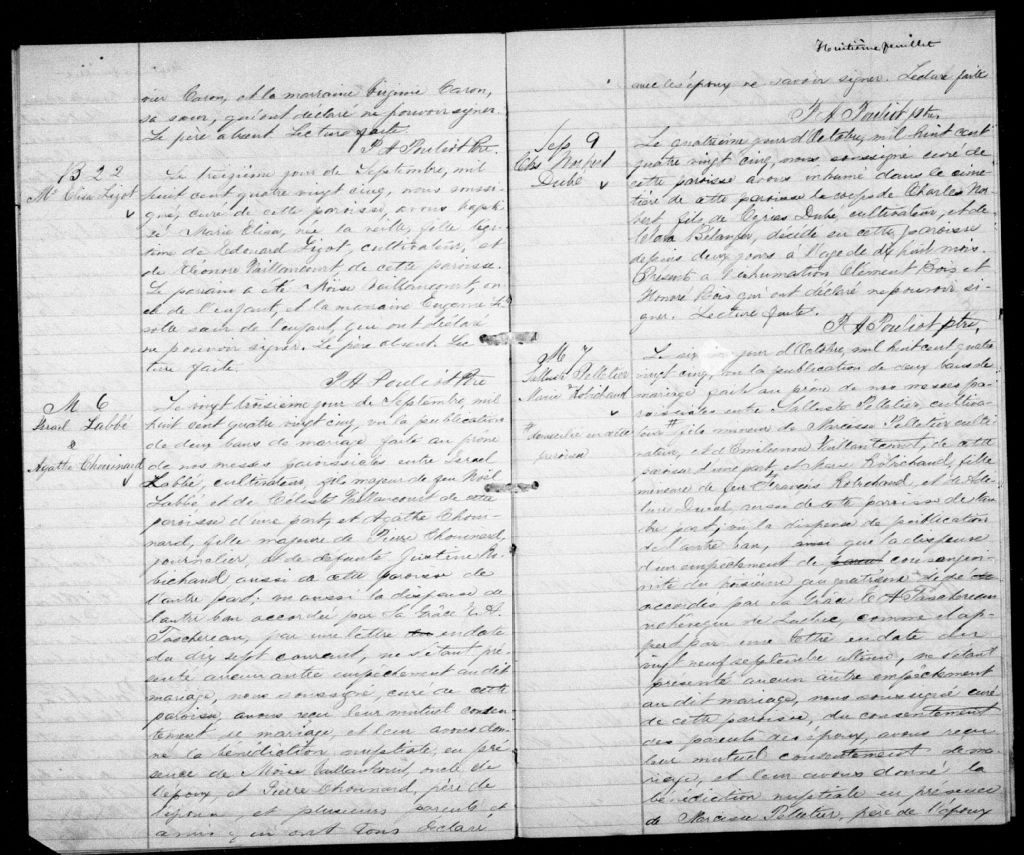 vier Caron, et la marraine Virginie Caron,
sa sœur, qui ont déclaré ne pouvoir signer.
Le père absent Lecture faite
F. A Pouliot Ptre.
B 22
Me Elisa Lizot
Le troisième jour de Septembre, mil
huit cent quatre vingt cinq, nous soussi-
gné, curé de cette paroisse, avons bapti-
sé Marie Elisa, née la veille, fille légi-
time de Edouard Lizot, cultivateur, et
de Eléonore Vaillancourt, de cette paroisse.
Le parrain a été Moise Vaillancourt, on-
cle de l'enfant, et la marraine Eugénie Li-
zotte sœur de l'enfant, qui ont déclaré
ne pouvoir signer. Le père absent. Lec-
ture faite.
F A Pouliot Ptre
M 6
Israel Labbé
&
Agathe Chouinard
Le vingt troisième jour de Septembre, mil
huit cent quatre vingt cinq, vu la publication
de deux bans de mariage faite au prône
de nos messes paroissiales entre Israel
Labbé, cultivateur, fils majeur de feu Noël
Labbé et de Céleste Vaillancourt de cette
paroisse d'une part, et Agathe Choui-
nard, fille majeure de Pierre Chouinard,
journalier, et de défunte Justine Ro-
bichaud aussi de cette paroisse de
l'autre part; vu aussi la dispense de
l'autre ban accordée par Sa Grâce E. A.
Taschereau, par une lettre en date
du dix sept courant, ne s'étant pré-
senté aucun autre empêchement au dit
mariage, nous soussigné, curé de cette
paroisse, avons reçu leur mutuel consen-
tement de mariage, et leur avons don-
né la bénédiction nuptiale, en pré-
sence de Moise Vaillancourt, oncle de
l'époux, et Pierre Chouinard, père de
l'épouse, et plusieurs parents et
amis qui ont tous déclaré
Huitième feuillet
avec les époux ne savoir signer. Lecture faite
F A Pouliot ptre.
Sep 9
Chs Norbert
Dubé
Le quatrième jour d'Octobre, mil huit cent
quatre vingt cinq, nous soussigné curé de
cette paroisse avons inhumé dans le cime-
tière de cette paroisse le corps de Charles Nor-
bert, fils de Dubé, cultivateur, et de
Clara Bélanger, décédé en cette paroisse
depuis deux jours à l'age de dix huit mois.
Présents à l'inhumation Clément Bois et
Honoré Bois qui ont déclaré ne pouvoir si-
gner. Lecture faite.
F A Pouliot ptre.
M 7
Salluste Pelletier
&
Marie Robichaud
# domicilié en cette
paroisse
Le six jour d'Octobre, mil huit cent quatre
vingt cinq, vu la publication de deux bans de
mariage faite au prône de nos messes pa-
roissiales entre Salluste Pelletier, cultiva-
teur # fils mineur de Narcisse Pelletier culti-
vateur, et d'Emilienne Vaillancourt, de cette
paroisse d'une part, et Marie Robichaud, fille
mineure de feu François Robichaud, et de
Duval, aussi de cette paroisse de l'au-
tre part, vu la dispense de publication
de l'autre ban, ainsi que la dispense
d'un empêchement de consangui-
nité du troisième au quatrième degré
accordés par Sa Grâce E A Taschereau
archevêque de Québec, comme il ap-
pert par une lettre en date du
vingt neuf septembre ultime, ne s'étant
présenté aucun autre empêchement
au dit mariage, nous soussigné curé
de cette paroisse, du consentement
des parents des époux, avons reçu
leur mutuel consentement de ma-
riage, et leur avons donné la
bénédiction nuptiale en présence
de Narcisse Pelletier, père de l'époux